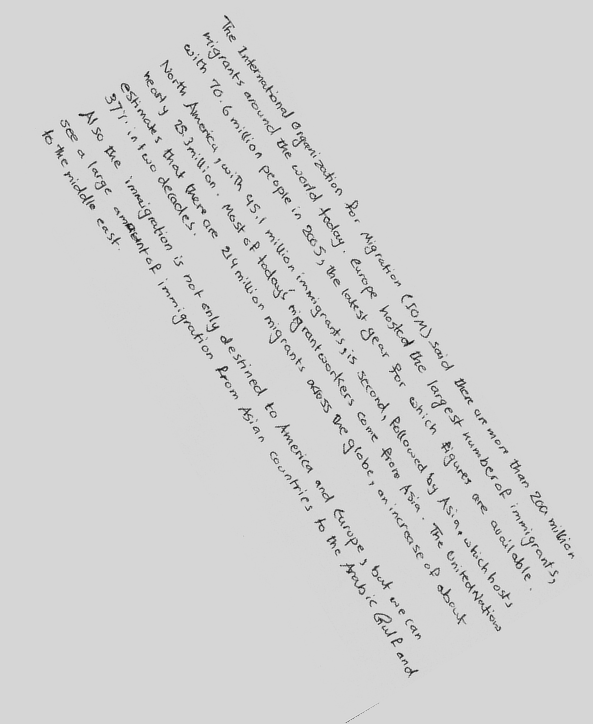 The International Organization for Migration (IOM) said there are more than 200 million
migrants around the world today. Europe hosted the largest number of immigrants,
with 70.6 million people in 2005, the latest year for which figures are available.
North America, with 45.1 million immigrants, is second, followed by Asia, which hosts
nearly 25.3 million. Most of today's migrant workers come from Asia. The United Nations
estimates that there are 214 million migrants across the globe, an increase of about
37% in two decades.
Also the immigration is not only destined to America and Europe, but we can
see a large amount of immigration from Asian countries to the Arabic Gulf and
to the middle east.